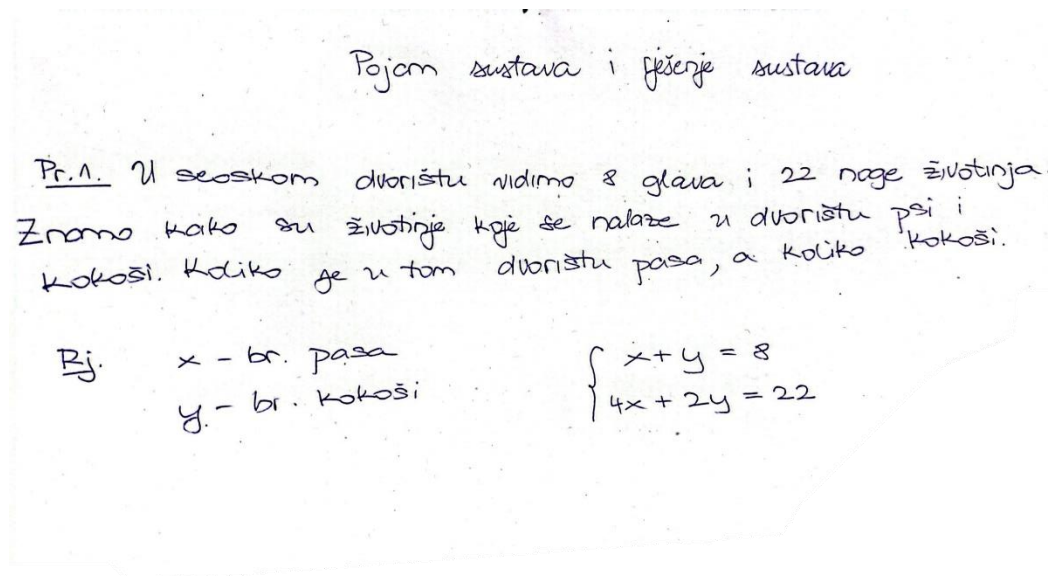 Pojam sustava i rješenje sustava
Pr.1. U seoskom dvorištu vidimo 8 glava i 22 noge životinja.
Znamo kako su životinje koje se nalaze u dvorištu psi i
kokoši. Koliko je u tom dvorištu pasa, a koliko kokoši.
Rj. x - br. pasa
y - br. kokoši
x + y = 8
4x + 2y = 22